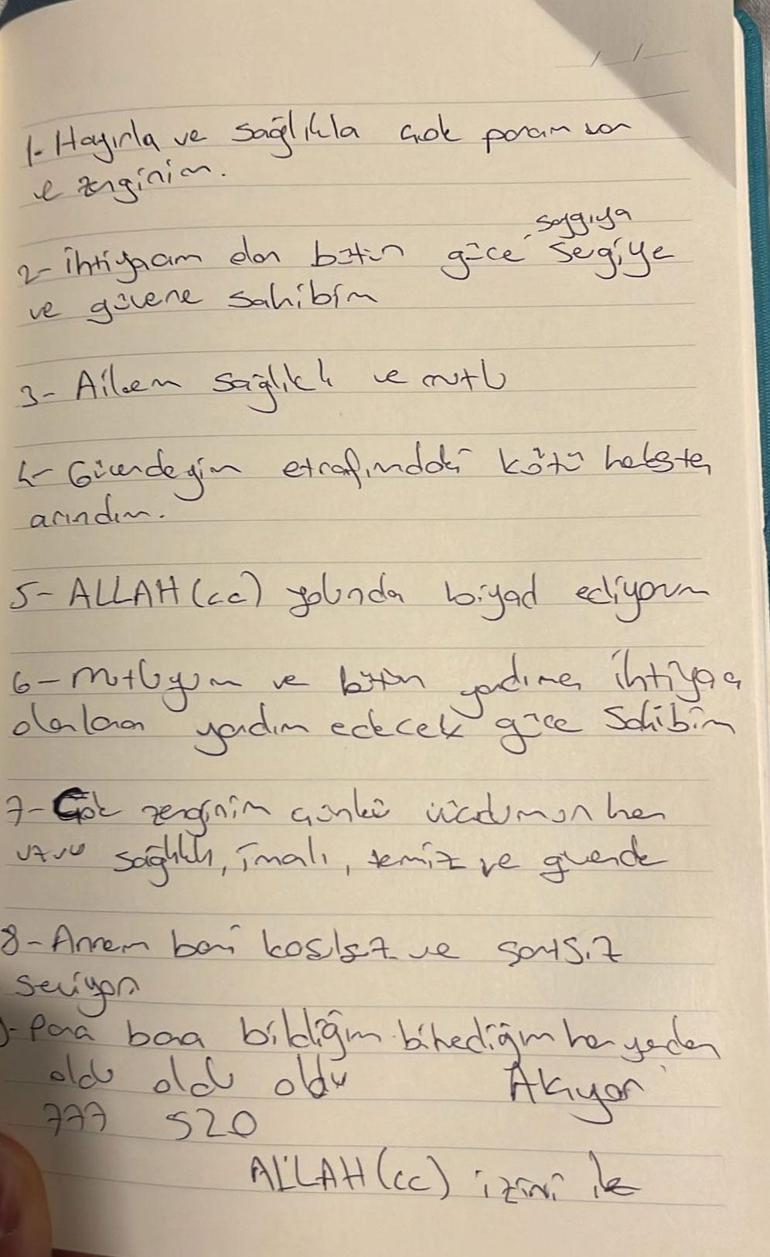 1- Hayırla ve sağlıkla çok param var
ve zenginim.
saygıya
2- İhtiyacım olan bütün güce segiye
ve güvene sahibim
3- Ailem sağlıklı ve mutlu
4- Güvendeyim etrafımdaki kötü
arındım.
5- ALLAH (cc) yolunda ediyorum
6- mutluyum ve bütün yardıma ihtiyaç
olanlara yardım edecek güce sahibim
7- Çok zenginim çünkü vücudumun her
uzvu sağlıklı, imalı, temiz ve güvende
8- Annem beni koşulsuz ve şartsız
seviyor
9- Para bana bildiğim bilmediğim her yerden
oldu oldu oldu Akıyor
777 520
ALLAH (cc) izini ile